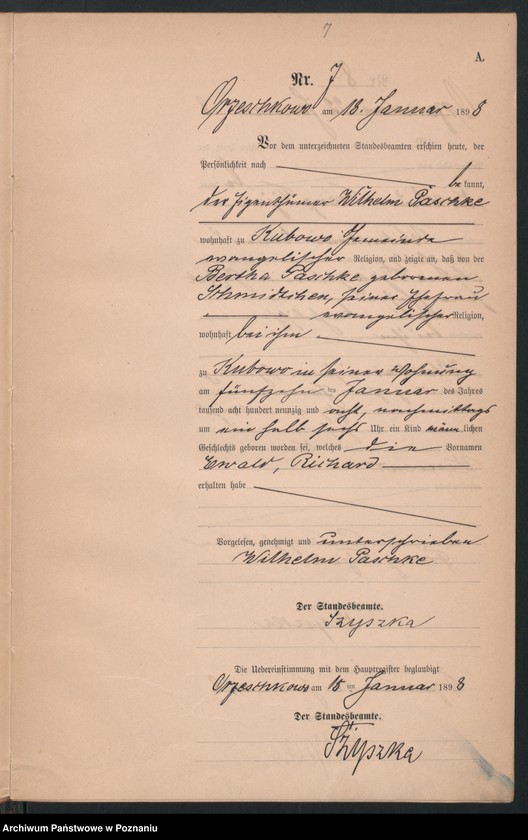 7
A.
Nr. 7
Orzeschkowo am 18. Januar 1898
Vor dem unterzeichneten Standesbeamten erschien heute, der
Persönlichkeit nach
be kannt,
der Eigenthümer Wilhelm Paschke
wohnhaft zu Kubowo Gemeinde
evangelischer Religion, und zeigte an, daß von der
Bertha Paschke geborenen
Schmidtchen, seiner Ehefrau
evangelischer Religion,
wohnhaft bei ihm
zu Kubowo in seiner Wohnung
am fünfzehn ten Januar des Jahres
tausend acht hundert neunzig und acht, nachmittags
um ein halb sechs Uhr ein Kind männlichen
Geschlechts geboren worden sei, welches die Vornamen
Ewald, Richard
erhalten habe
Vorgelesen, genehmigt und unterschrieben
Wilhelm Paschke
Der Standesbeamte.
Szyszka
Die Uebereinstimmung mit dem Hauptregister beglaubigt
Orzeschkowo am 18 ten Januar 1898
Der Standesbeamte.
Szyszka
Archiwum Państwowe w Poznaniu